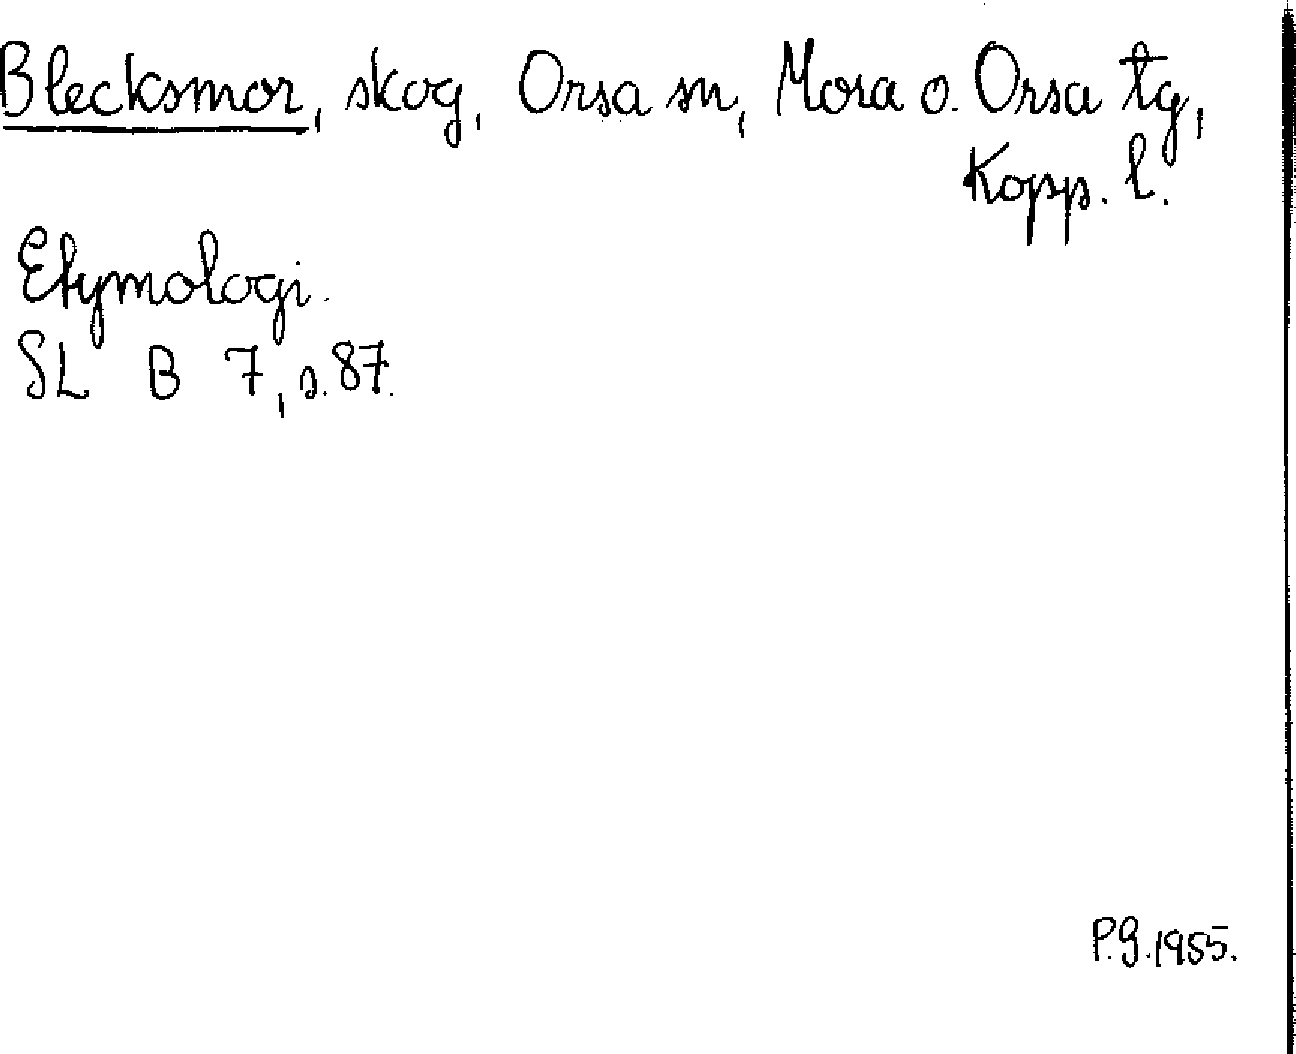 Blecksmor, skog, Orsa sn, Mora o. Orsa tg,
Kopp. l.
Etymologi.
SL B 7, s. 87.
P.G. 1985.